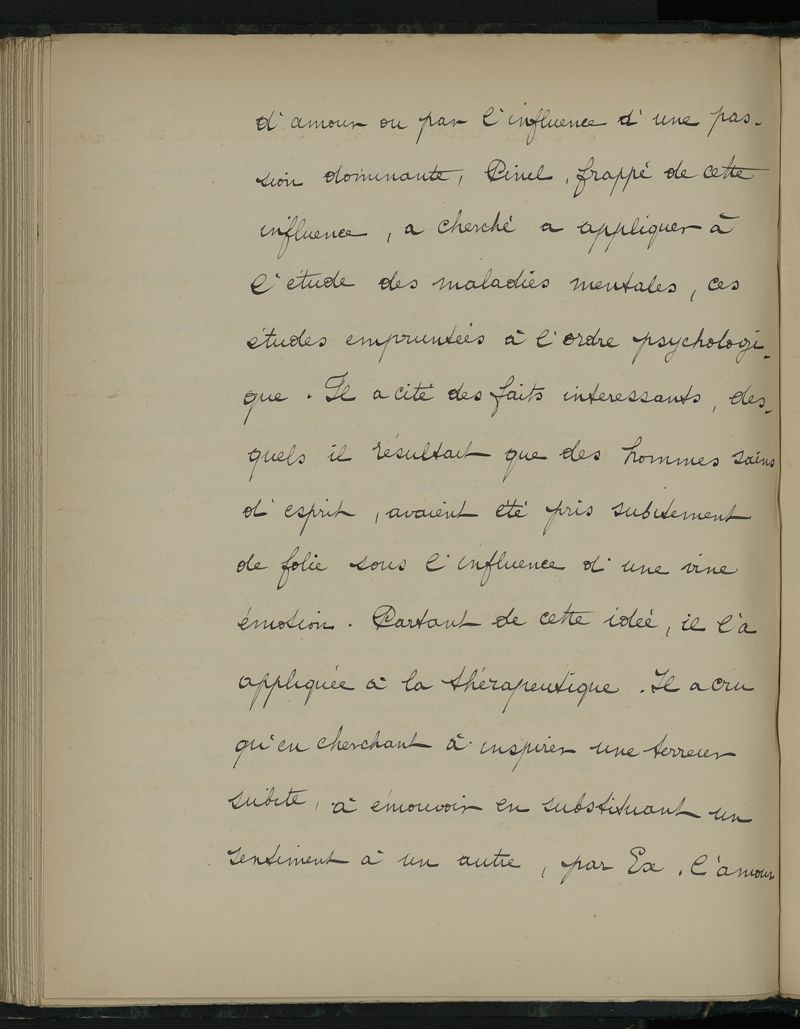 d'amour ou par l'influence d'une pas-
sion dominante, Pinel, frappé de cette
influence, a cherché a appliquer à
l'étude des maladies mentales, ces
études empruntées à l'ordre psychologi-
que. Il a cité des faits interessants, des-
quels il résultait que des hommes sains
d'esprit, avaient été pris subitement
de folie sous l'influence d'une vive
émotion. Partant de cette idée, il l'a
appliquée à la thérapeutique. Il a cru
qu'en cherchant à inspirer une terreur
subite, à émouvoir en substituant un
sentiment à un autre, par Ex. l'amour